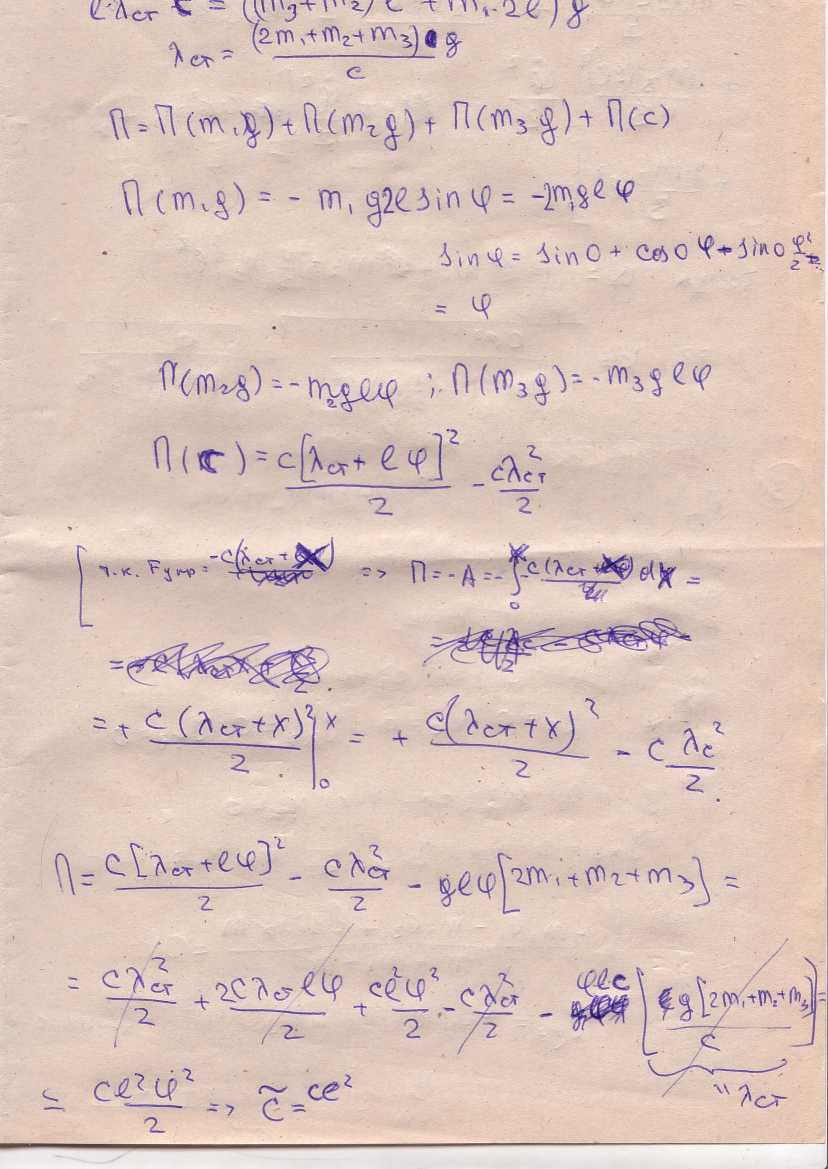 l·λст c = ((m₃+m₂)l + m₁·2l)g
λст = (2m₁+m₂+m₃)g / c
П = П(m₁g) + П(m₂g) + П(m₃g) + П(c)
П(m₁g) = - m₁ g2l sin φ = -2m₁glφ
sin φ = sin 0 + cos 0 φ - sin 0 φ²/2
= φ
П(m₂g) = -m₂glφ ; П(m₃g) = -m₃glφ
П(c) = c[λст + lφ]²/2 - cλст²/2
т.к. Fупр = -c(λст + x) => П = -A = -∫₀ˣ -c(λст+x) dx =
= + c(λст+x)²/2 |₀ˣ = + c(λст+x)²/2 - cλс²/2
П = c[λст+lφ]²/2 - cλст²/2 - glφ[2m₁+m₂+m₃] =
= cλст²/2 + 2cλстlφ/2 + cl²φ²/2 - cλст²/2 - φlc [g[2m₁+m₂+m₃]/c] =
" λст
= cl²φ²/2 => c̃ = cl²